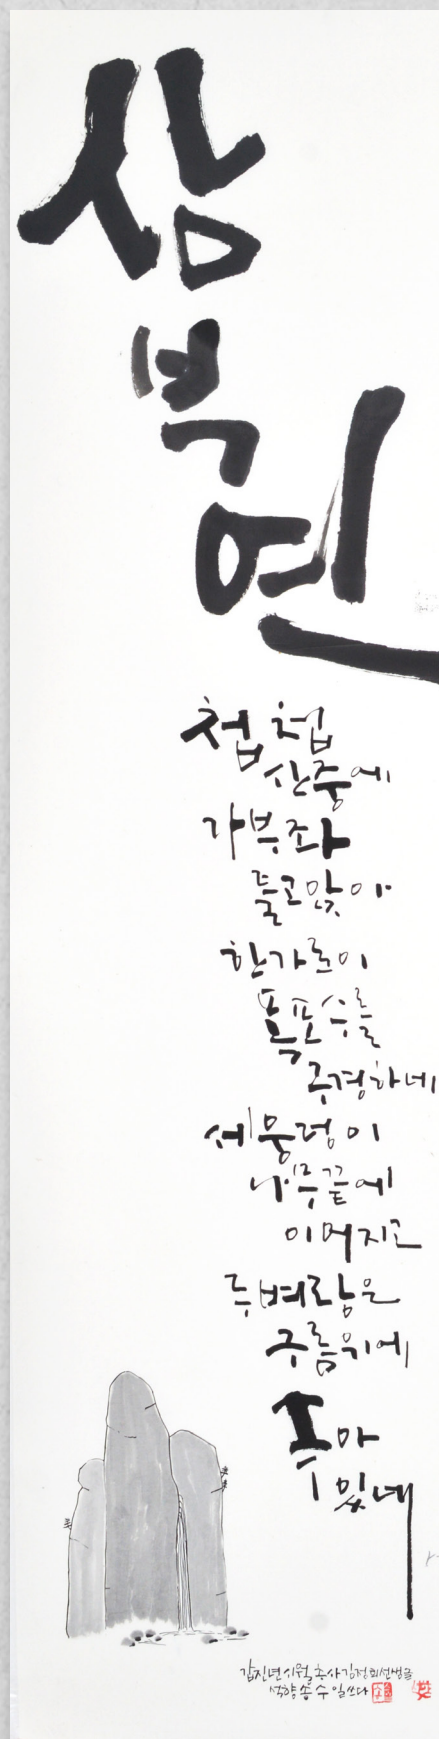 삼
부
연
첩첩
산중에
가부좌
틀고앉아
한가로이
폭포수를
구경하네
세웅덩이
나무끝에
이어지고
두벼랑은
구름위에
솟아
있네
갑진년 시월 추사 김정희 선생 글
석향 송수일 쓰다